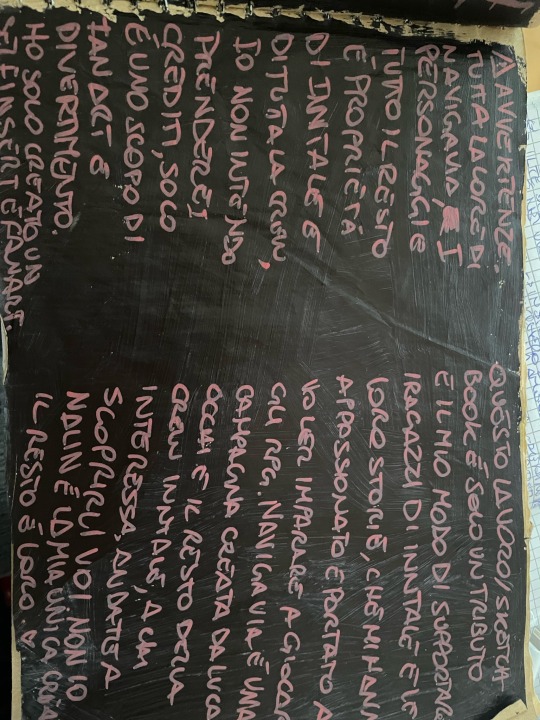 ⚠ AVVERTENZE.
TUTTA LA LORE DI
NAVIGAVIA, E I
PERSONAGGI E
TUTTO IL RESTO
È PROPRIETÀ
DI INNTALE E
DI TUTTA LA CREW,
IO NON INTENDO
PRENDERE I
CREDITI, SOLO
È UNO SCOPO DI
FAN ART E
DIVERTIMENTO.
HO SOLO CREATO UN
FANART.
QUESTO LAVORO/SKETCH
BOOK È SOLO UN TRIBUTO
E IL MIO MODO DI SUPPORTARE
I RAGAZZI DI INNTALE E LE
LORO STORIE, CHE MI HAN
APPASSIONATO E PORTATO A
VOLER IMPARARE A GIOCAR
GLI RPG. NAVIGAVIA È UNA
CAMPAGNA CREATA DA LUCA
E IL RESTO DELLA
CREW INNTALE, A CHI
INTERESSA, ANDATE A
SCOPRIRLI VOI NON IO
NALIN È LA MIA UNICA CREA
IL RESTO È LORO